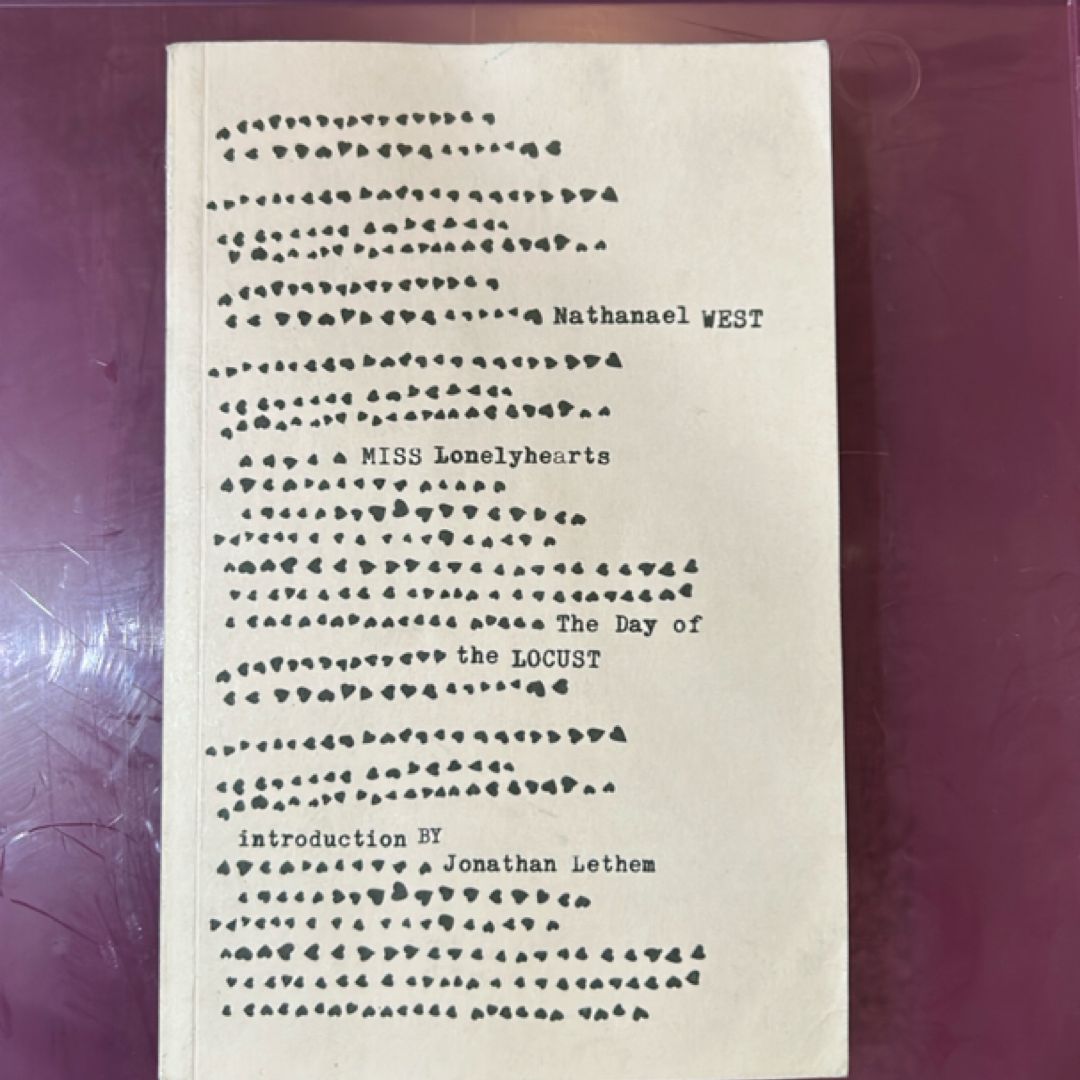 Nathanael WEST
MISS Lonelyhearts
The Day of
the LOCUST
introduction BY
Jonathan Lethem